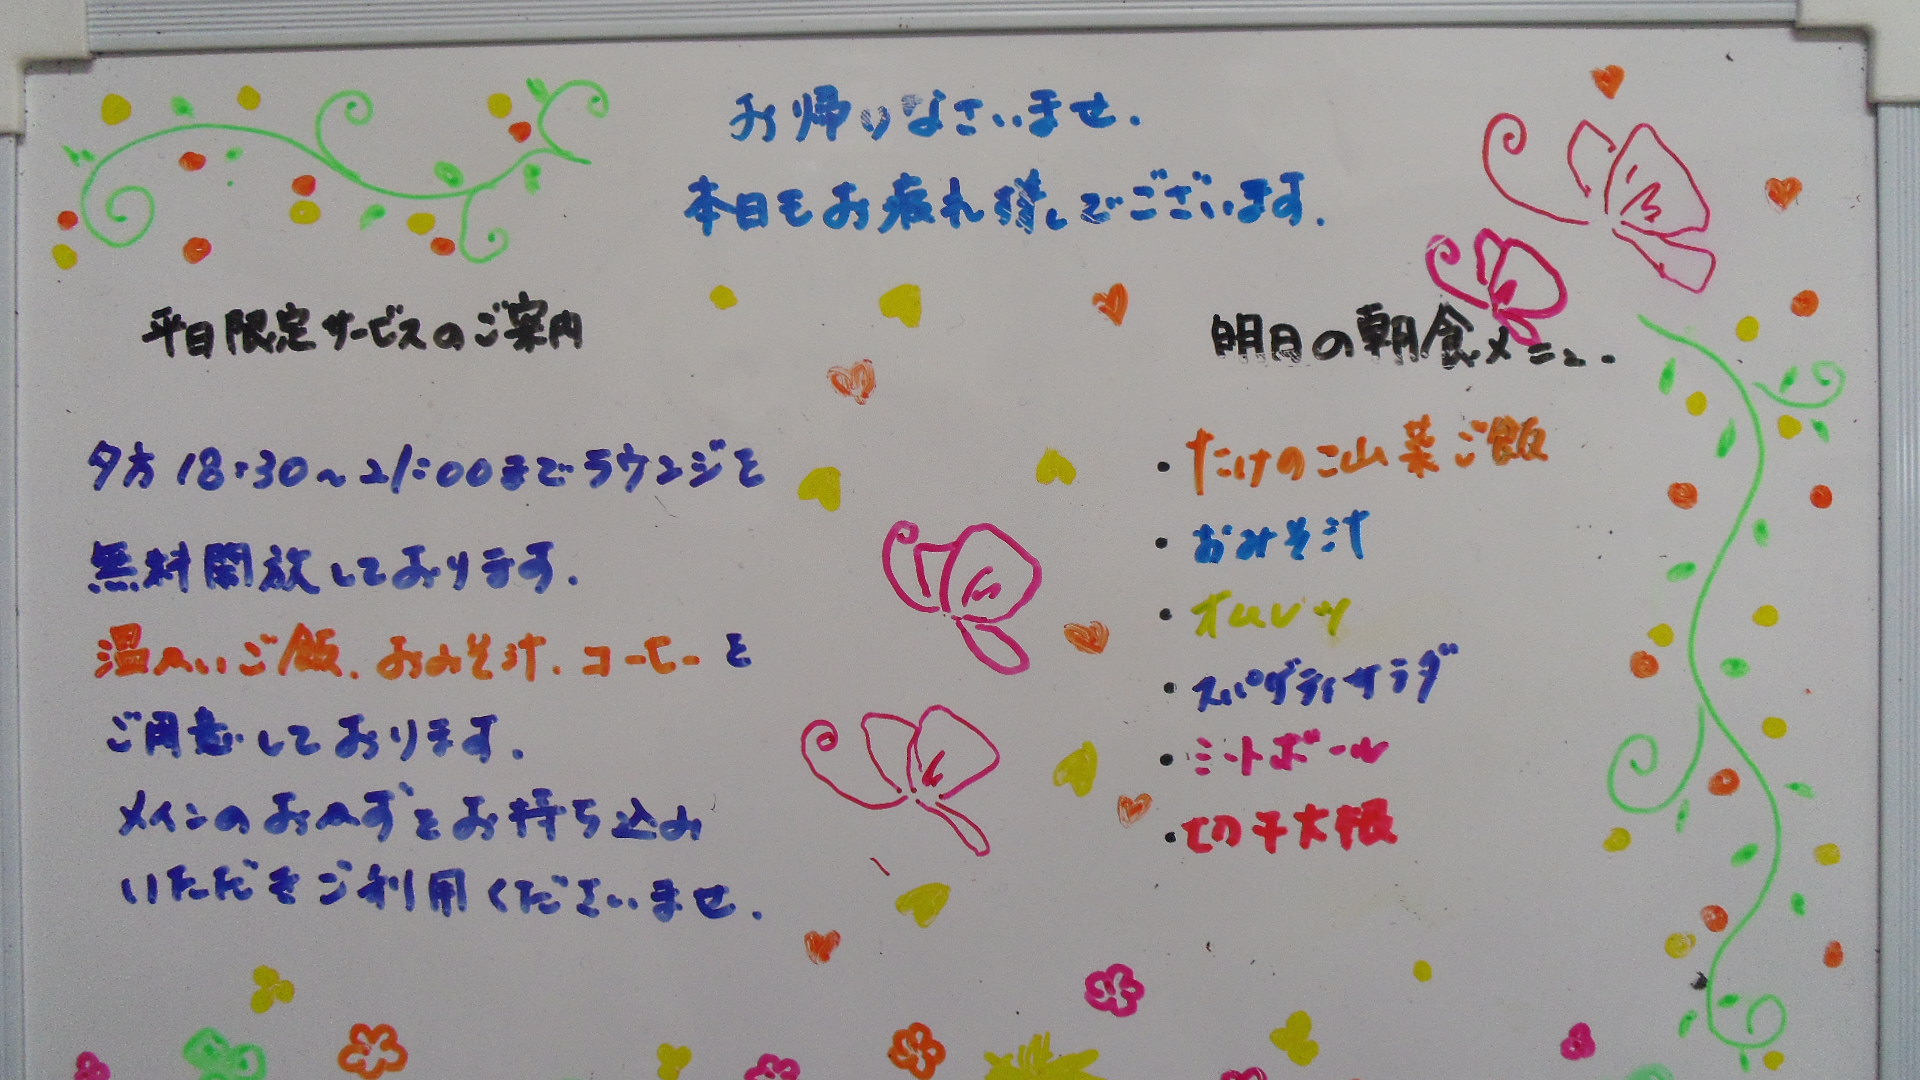 お帰りなさいませ.
本日もお疲れ様でございます.
平日限定サービスのご案内
夕方18:30~21:00までラウンジを
無料開放しております.
温かいご飯.おみそ汁.コーヒーを
ご用意しております.
メインのおかずをお持ち込み
いただきご利用くださいませ.
明日の朝食メニュー
・たけのこ山菜ご飯
・おみそ汁
・オムレツ
・スパゲティサラダ
・ミートボール
・切干大根